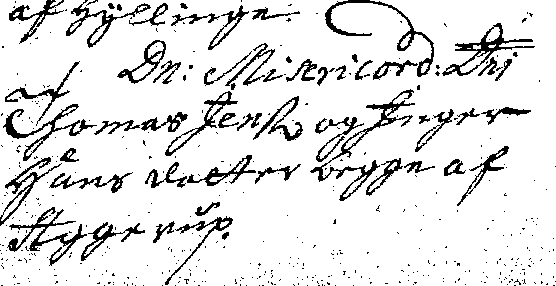 af Hÿllinge.
Dn: Misericord: Dni
af
Thomas Jens&) og Inger
Hans datter begge af
Aggerup.